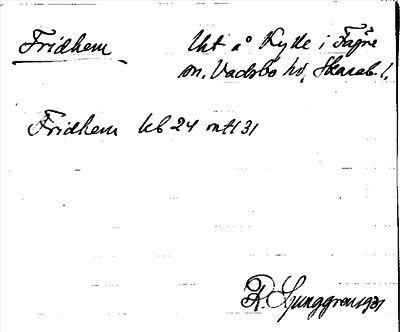 Fridhem Uht å Kylle i Fägre
sn, Vadsbo hd, Skarab. l.
Fridhem kb 24 mtl 31
R. Ljunggren 1931